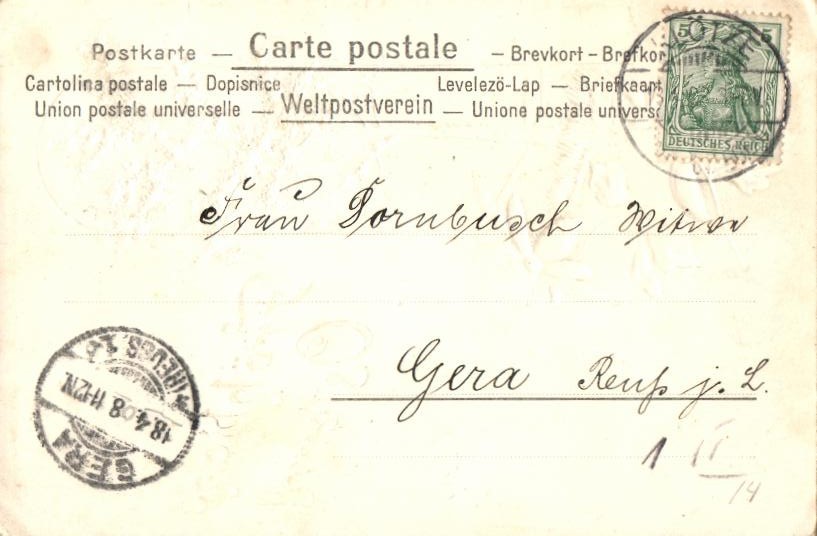 Postkarte — Carte postale — Brevkort – Brefkor
Cartolina postale — Dopisnice Levelezö-Lap — Briefkaart
Union postale universelle — Weltpostverein — Unione postale univers
5 5
ÖTZE
DEUTSCHES REICH
Frau Dornbusch Witwe
Gera Reuß j. L.
(REUSS. J.L.)
18.4.08 11-12N.
GERA
1 II
14